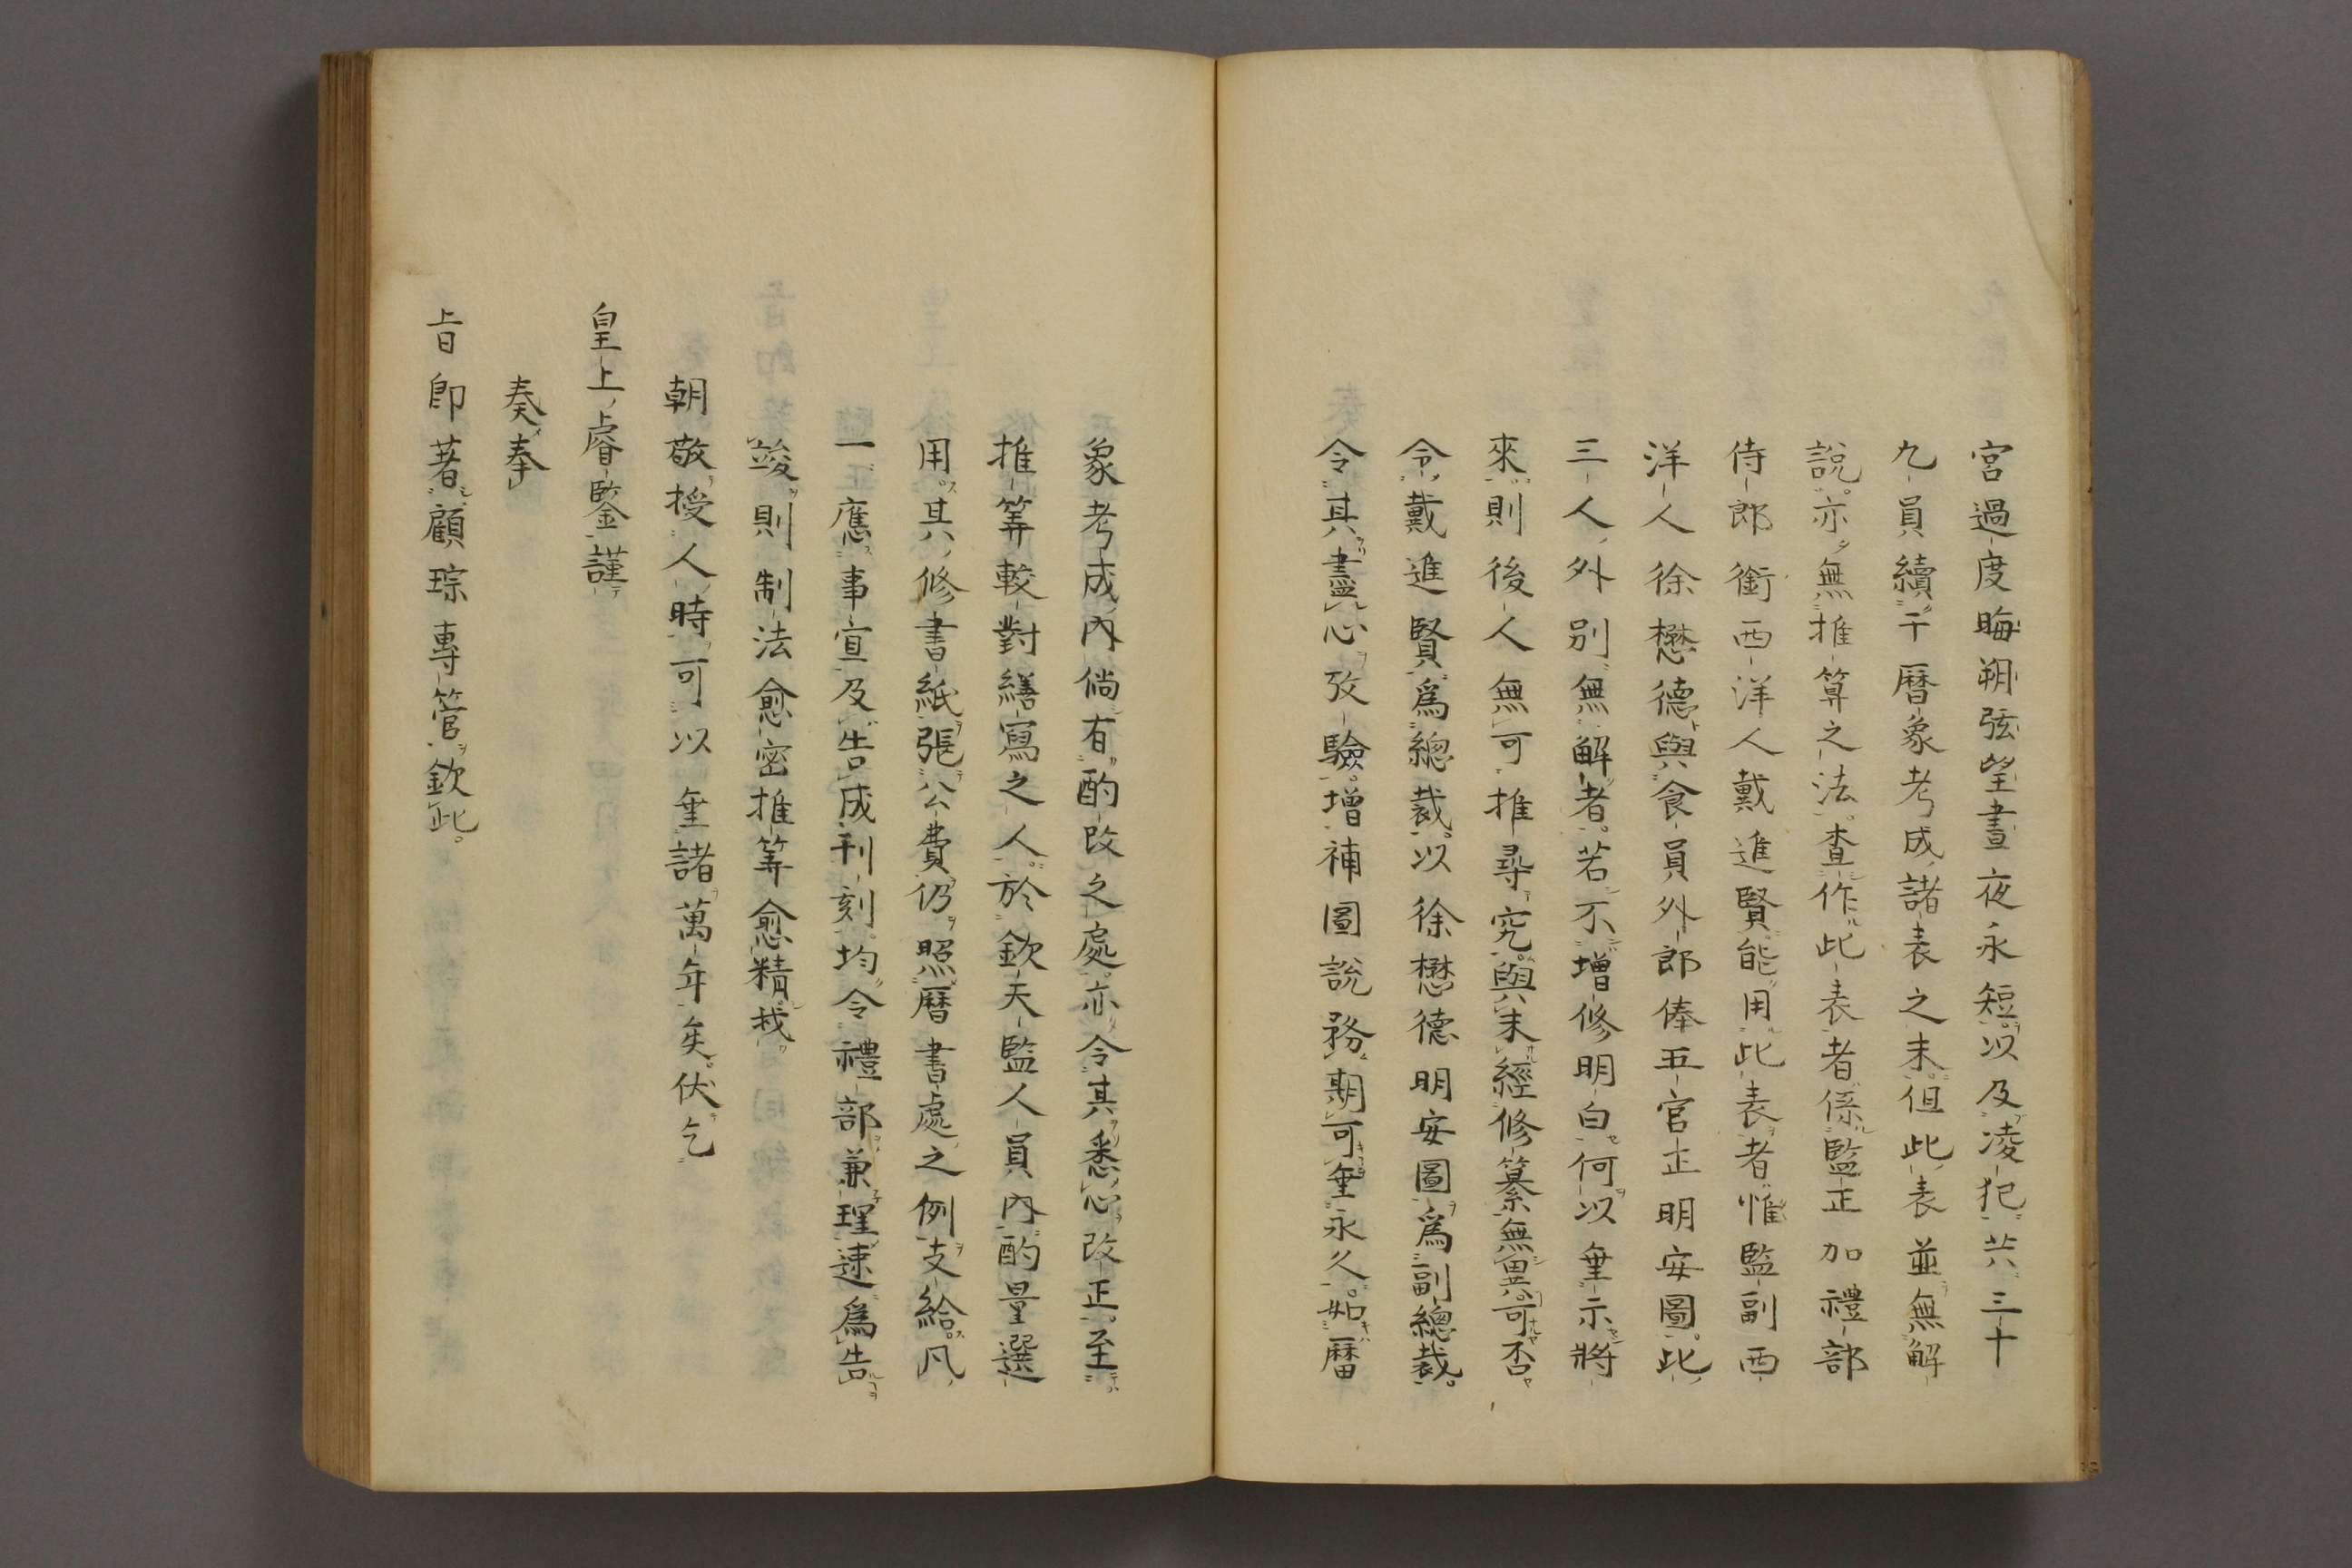 宮過度晦朔弦望晝夜永短以及凌犯共三十
九員續于曆象考成諸表之末但此表並無解
說亦無推算之法查作此表者係監正加禮部
侍郎銜西洋人戴進賢能用此表者惟監副西
洋人徐懋德與食員外郎俸五官正明安圖此
三人外別無解者若不增修明白何以垂示將
來則後人無可推尋究與未經修纂無異可否
令戴進賢為總裁以徐懋德明安圖為副總裁
令其盡心攷驗增補圖說務期可垂永久如曆
象考成內倘有酌改之處亦令其悉心改正至
推筭較對繕寫之人於欽天監人員內酌量選
用其修書紙張公費仍照曆書處之例支給凡
一應事宜及告成刊刻均令禮部兼理速為告
竣則制法愈密推筭愈精我
朝敬授人時可以垂諸萬年矣伏乞
皇上睿鑒謹
奏奉
旨即著顧琮專管欽此